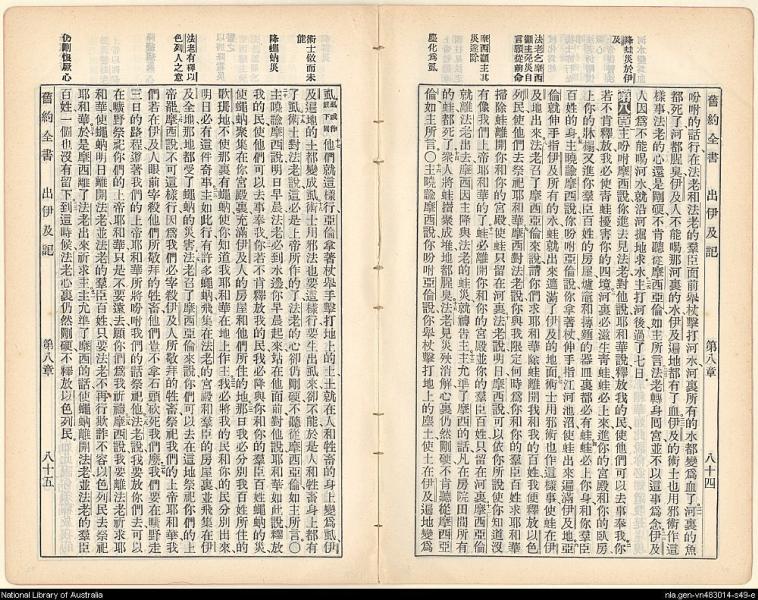 舊約全書 出伊及記 第八章 八十四
降蛙災於伊及
塵化爲虱
吩咐的話行在法老和法老的羣臣面前舉杖擊打河水河裏所有的水都變爲血了河裏的魚
都死了河都腥臭伊及人不能喝那河裏的水伊及遍地都有了血伊及的術士也用邪術作這
樣事法老的心還是剛硬不肯聽從摩西亞倫如主所言法老轉身囘宮並不以這事爲念伊及
人因爲不能喝河水就沿河掘地求水主打河後過了七日
第八章主吩咐摩西說你進去見法老對他說耶和華說釋放我的民使他們可以去事奉我你
若不肯釋放我必使青蛙擾害你的四境河裏必滋生青蛙蛙必上來進你的宮殿和你的臥房
上你的牀榻又進你羣臣百姓的房屋爐竈和摶麵的器皿裏都必有蛙蛙必上你身和你羣臣
百姓的身主曉諭摩西說你吩咐亞倫說你拿著杖伸手指江河池沼使蛙出來遍滿伊及地亞
倫就伸手指伊及所有的水蛙就出來遮滿了伊及的地面術士用邪術也作這樣事使蛙在伊
及地出來法老召了摩西亞倫來說請你們求耶和華除蛙離開我和我的百姓我便釋放以色
列民使他們去祭祀耶和華摩西對法老說你與我限定何時爲你和你的羣臣百姓求耶和華
掃除蛙離開你和你的宮殿使蛙只留在河裏法老說明日摩西說可以依你所說使你知道沒
有像我們上帝耶和華的了蛙必離開你和你的宮殿並你的羣臣百姓只留在河裏摩西亞倫
就離法老出去摩西因主降與法老的蛙災就禱告主主允準了摩西的話凡在房院田間所有
的蛙都死了衆人將蛙攢聚成堆地都腥臭法老見災殃消解心裏仍然剛硬不肯聽從摩西亞
倫如主所言○主曉諭摩西說你吩咐亞倫說你舉杖擊打地上的塵土使土在伊及遍地變爲
術士做而未能
降蠅蚋災
法老有釋以色列人之意
仍剛愎厥心
虱他們就這樣行亞倫拿著杖舉手擊打地上的土土就在人和牲畜的身上變爲虱伊
及遍地的土都變成虱術士用邪法也要這樣行要生出虱來卻不能於是人和牲畜身上都有
了虱術士對法老說這必是上帝所作的了法老的心卻仍剛硬不聽從摩西亞倫如主所言○
主曉諭摩西說明日早晨法老必到水邊你早晨起來站在他面前對他說耶和華如此說釋放
我的民使他們可以去事奉我你若不肯釋放我的民我必降與你和你的羣臣百姓蠅蚋的災
使蠅蚋聚集在你宮殿裏充滿伊及人的房屋和他們所住的地那日我必分別我百姓所住的
歌珊地不使那裏有蠅蚋使你知道我耶和華在地上作主我必將我的民和你的民分別出來
明日必有這件奇事主如此行有許多蠅蚋飛集在法老的宮殿和羣臣的房屋裏並飛集在伊
及全地那地都受了蠅蚋的災害法老召了摩西亞倫來說你們可以去在這地祭祀你們的上
帝罷摩西說不可這樣行因爲我們必宰殺伊及人所敬拜的牲畜祭祀我們的上帝耶和華我
們若在伊及人眼前宰殺他們所敬拜的牲畜他們豈不拿石頭砍死我們麽我們要在曠野走
三日的路程遵著我們的上帝耶和華所將吩咐我們的話祭祀他法老說我要放你們去可以
在曠野祭祀你們的上帝耶和華只是不要遠去願你們爲我祈禱摩西說我要離法老祈求耶
和華使蠅蚋明日離開法老並法老的羣臣百姓只要法老不再行欺詐不容以色列民去祭祀
耶和華於是摩西離了法老出來祈求主主允準了摩西的話使蠅蚋離開法老並法老的羣臣
百姓一個也沒有留下到這時候法老心裏仍然剛硬不釋放以色列民
舊約全書 出伊及記 第八章 八十五
National Library of Australia
nla.gen-vn483014-s49-e